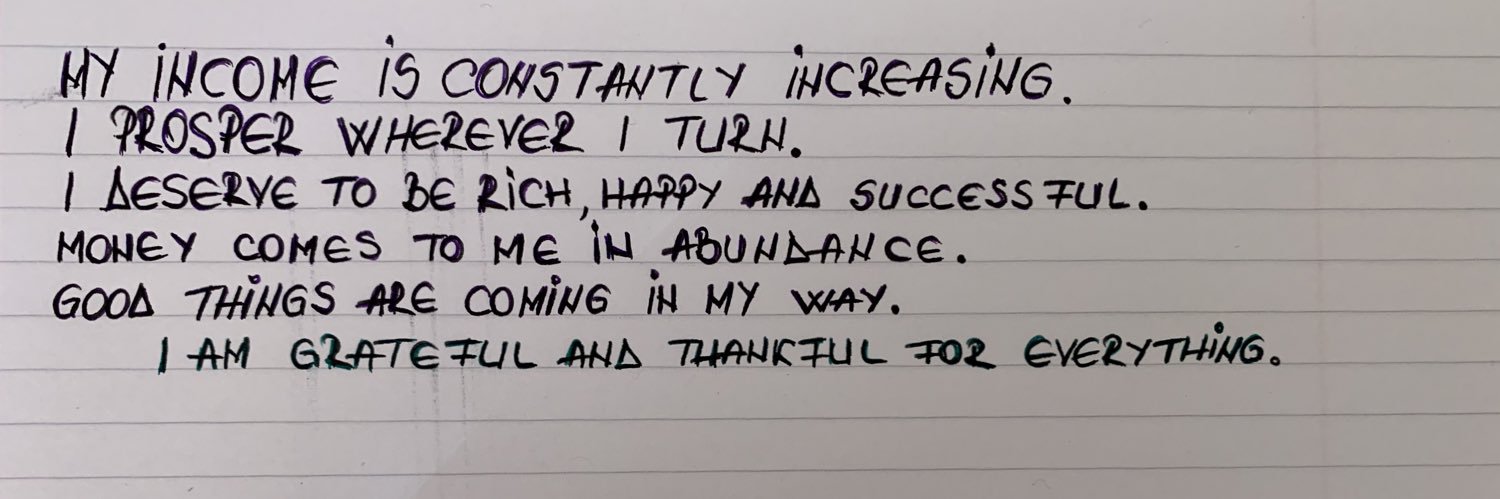 MY iNCOME iS CONSTANTLY iNCREASiNG.
I PROSPER WHEREVER I TURN.
I DESERVE TO BE RiCH, HAPPY AND SUCCESSFUL.
MONEY COMES TO ME iN ABUNDANCE.
GOOD THiNGS ARE COMiNG iN MY WAY.
I AM GRATEFUL AND THANKFUL FOR EVERYTHiNG.